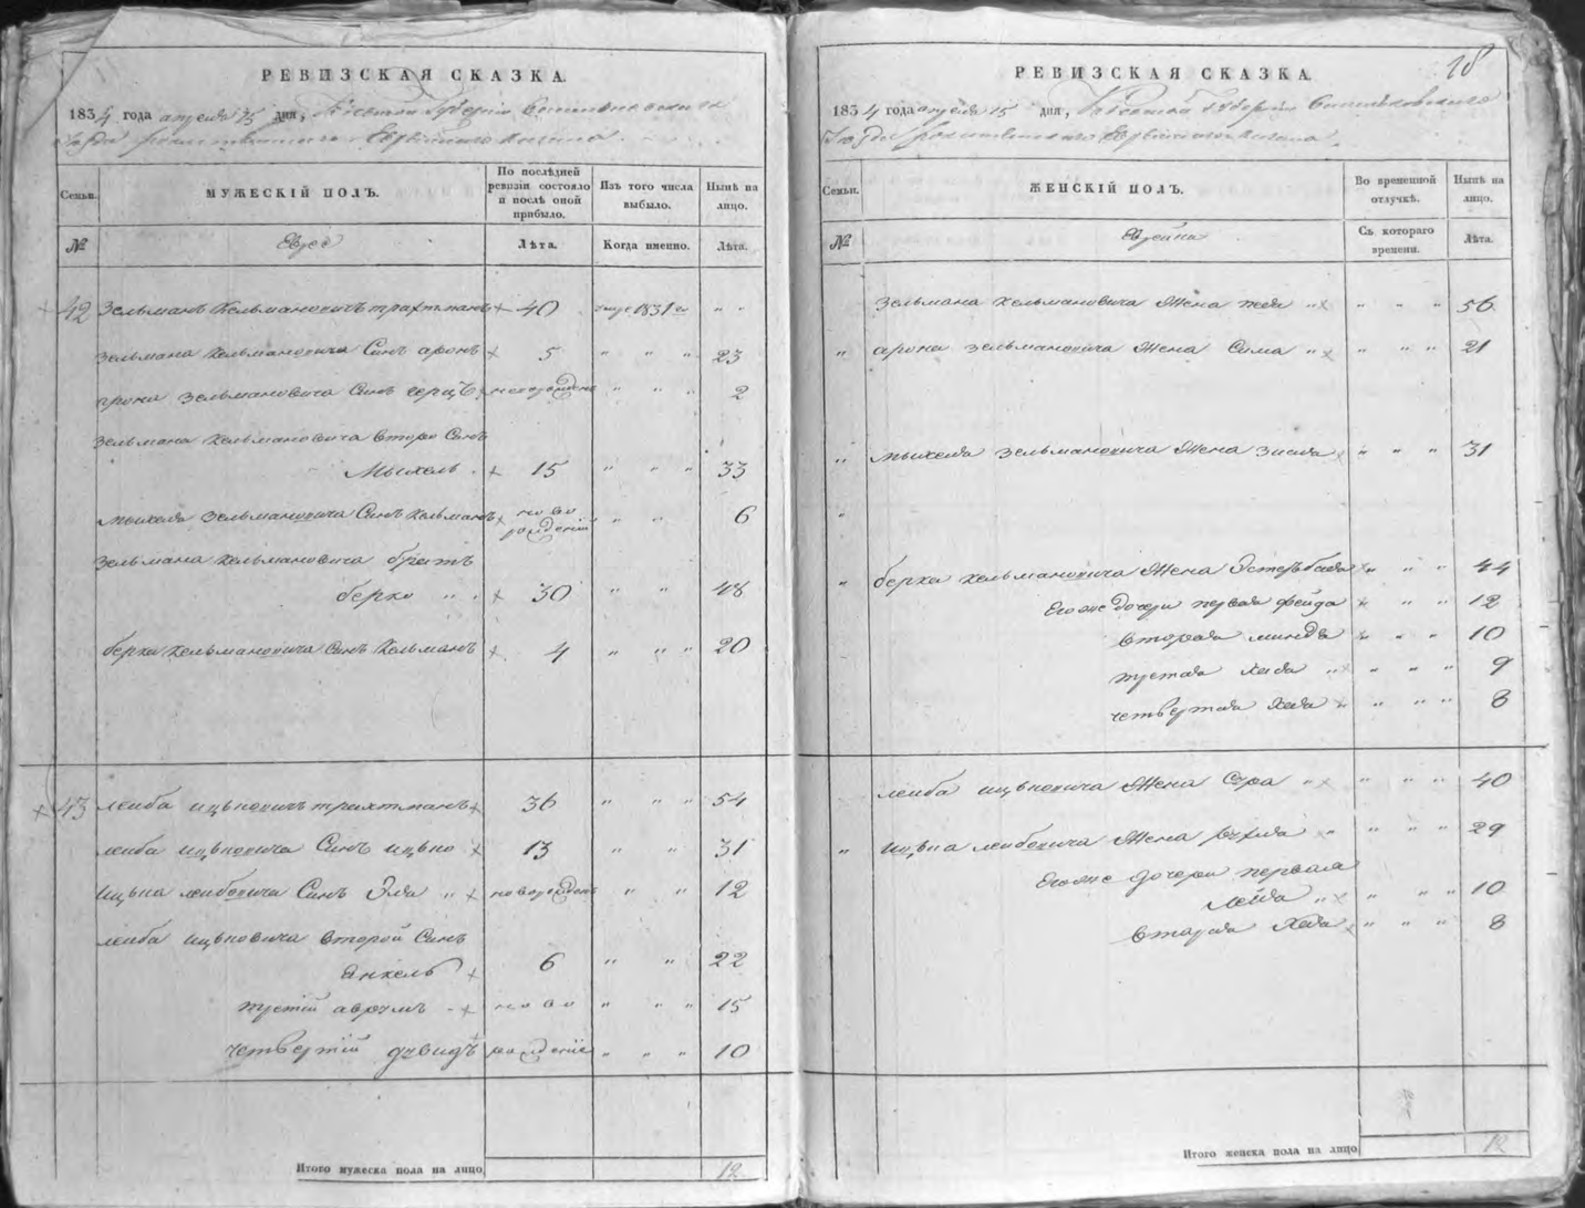 РЕВИЗСКАЯ СКАЗКА.
1834 года апреля 15 дня, Киевской Губернии
Уезда Еврейского
Семьи.
МУЖЕСКІЙ ПОЛЪ.
По послѣдней ревизіи состояло и послѣ оной прибыло.
Изъ того числа выбыло.
Нынѣ на лицо.
№
Евреи
Лѣта.
Когда именно.
Лѣта.
42 Зельманъ Кельмановичъ трахтманъ 40 1831го " "
Зельмана Кельмановича Синъ аронъ 5 " " " 23
арона Зельмановича Синъ герцъ новорожденъ " " " 2
Зельмана Кельмановича второй Синъ
Мыхель 15 " " " 33
мыхеля Зельмановича Синъ Кельманъ ново рожденій " " 6
Зельмана Кельмановича братъ
берко " 30 " " 48
берка Кельмановича Синъ Кельманъ 4 " " " 20
43 леиба ицьковичъ трахтманъ 36 " " " 54
леиба ицьковича Синъ ицько 13 " " 31
ицька леибовича Синъ Эля " новорожденъ " " 12
леиба ицьковича второй Синъ
Янкель 6 " " 22
третій аврумъ ново " " " 15
четвертій давидъ рожденіе " " " 10
Итого мужеска пола на лицо 12
18
РЕВИЗСКАЯ СКАЗКА.
1834 года апреля 15 дня, Киевской Губернии
Уезда Еврейского
Семьи.
ЖЕНСКІЙ ПОЛЪ.
Во временной отлучкѣ.
Нынѣ на лицо.
№
Еврейки
Съ котораго времени.
Лѣта.
Зельмана Кельмановича Жена " " " " 56
" арона Зельмановича Жена Сима " " " " 21
" мыхеля Зельмановича Жена Зисля " " " 31
"
" берка Кельмановича Жена Эстеръ " " " 44
Егоже дочери первая фейга " " " 12
вторая миндя " " " 10
третая Хая " " " " 9
четвертая " " " " 8
леиба ицьковича Жена Сура " " " " 40
" ицька леибовича Жена рухля " " " " 29
Егоже дочери первая
лейя " " " " 10
вторая " " " 8
Итого женска пола на лицо 12